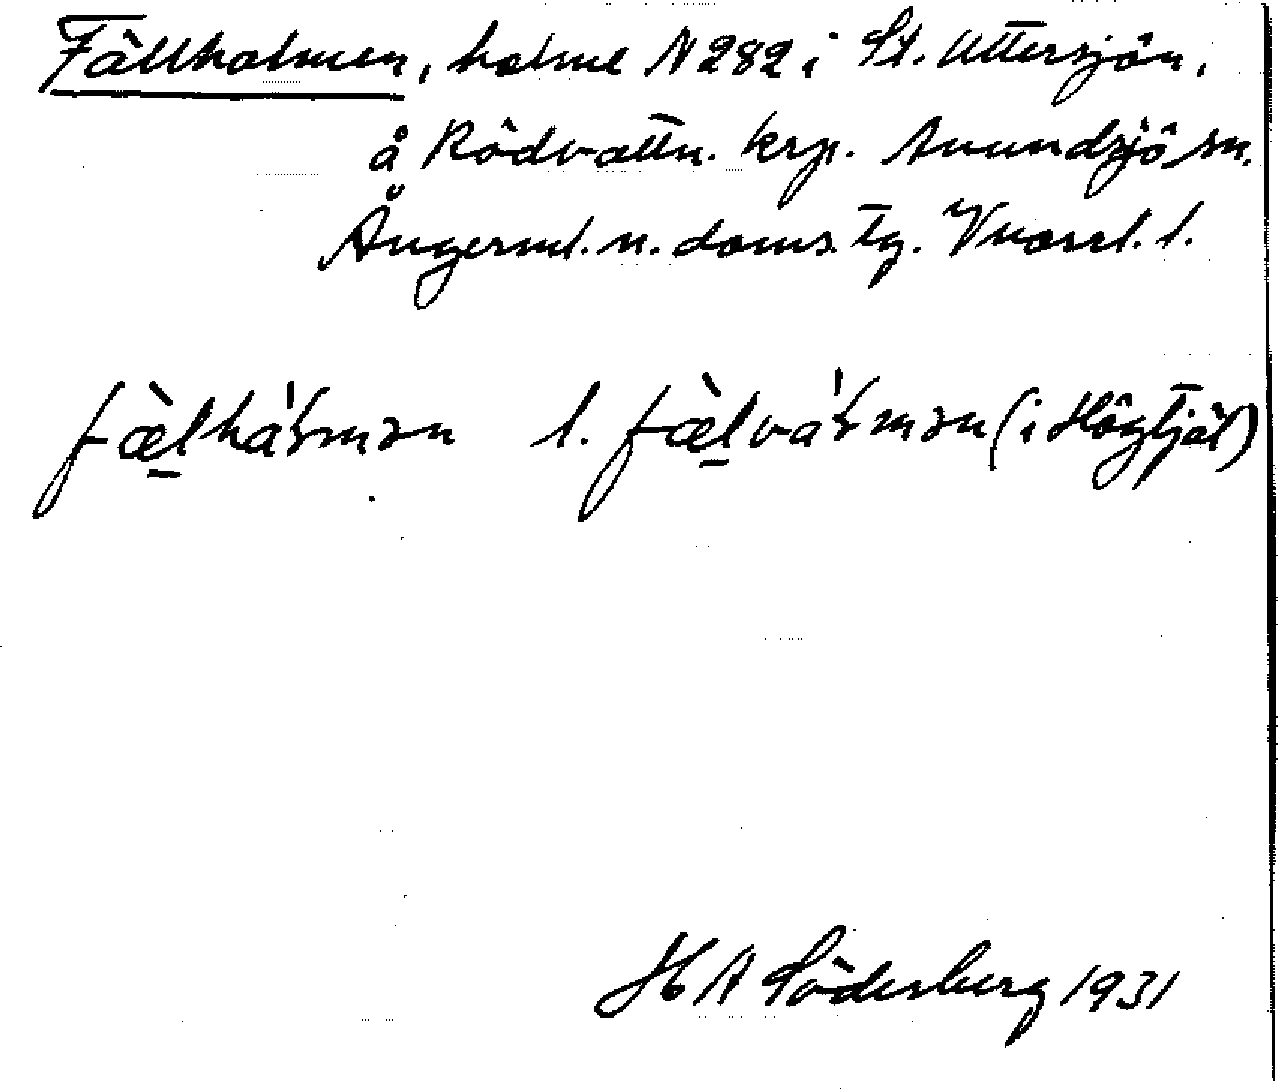 Fällholmen, holme N 282 i St. Uttersjön,
å Rödvattn. krp. Anundsjö sn.
Ångerml. n. doms. tg. Vnorrl. l.
fæ̀l̠há̍ɽmən l. fæ̀l̠vá̍ɽmən (i Högtjäl)
H A Söderberg 1931